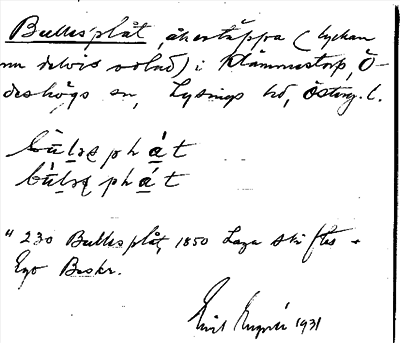 Bullesplåt, åkertäppa (lyckan
nu delvis odlad) i Klämmestorp, Ö-
deshögs sn, Lysings hd, Östergl. l.
bùlǝs phát
búlǝs phát
" 230 Bullesplåt, 1850 Laga skiftes-
Ego Beskr.
1931